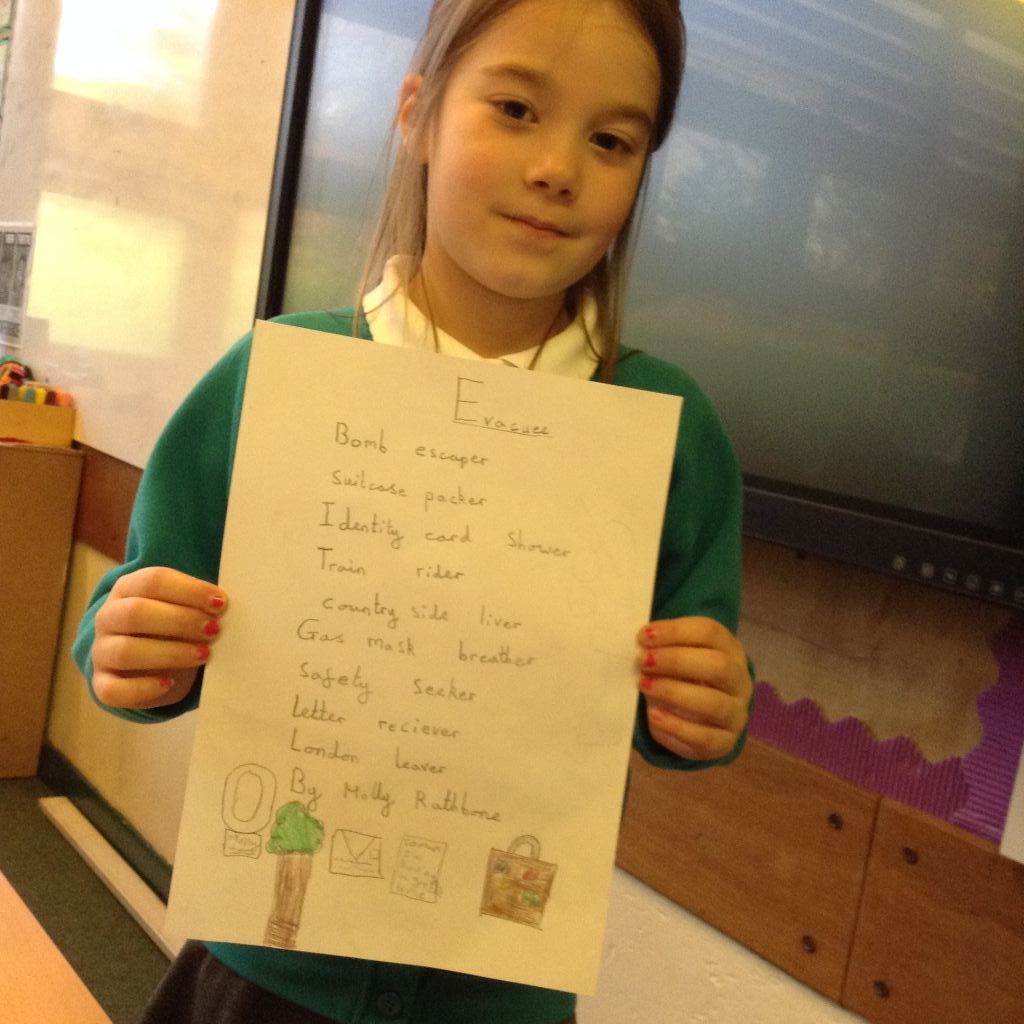 Evacuee
Bomb escaper
Suitcase packer
Identity card shower
Train rider
country side liver
Gas mask breather
Safety seeker
Letter reciever
London leaver
By Molly Rathbone